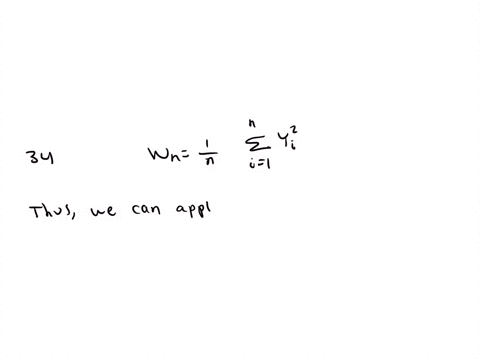 34 Wn = 1/n n Σ i=1 Yi²
Thus, we can appl